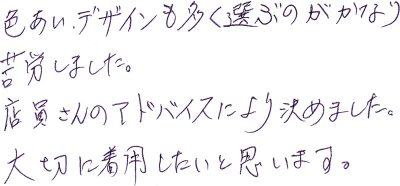 色あい、デザインも多く選ぶのがかなり
苦労しました。
店員さんのアドバイスにより決めました。
大切に着用したいと思います。